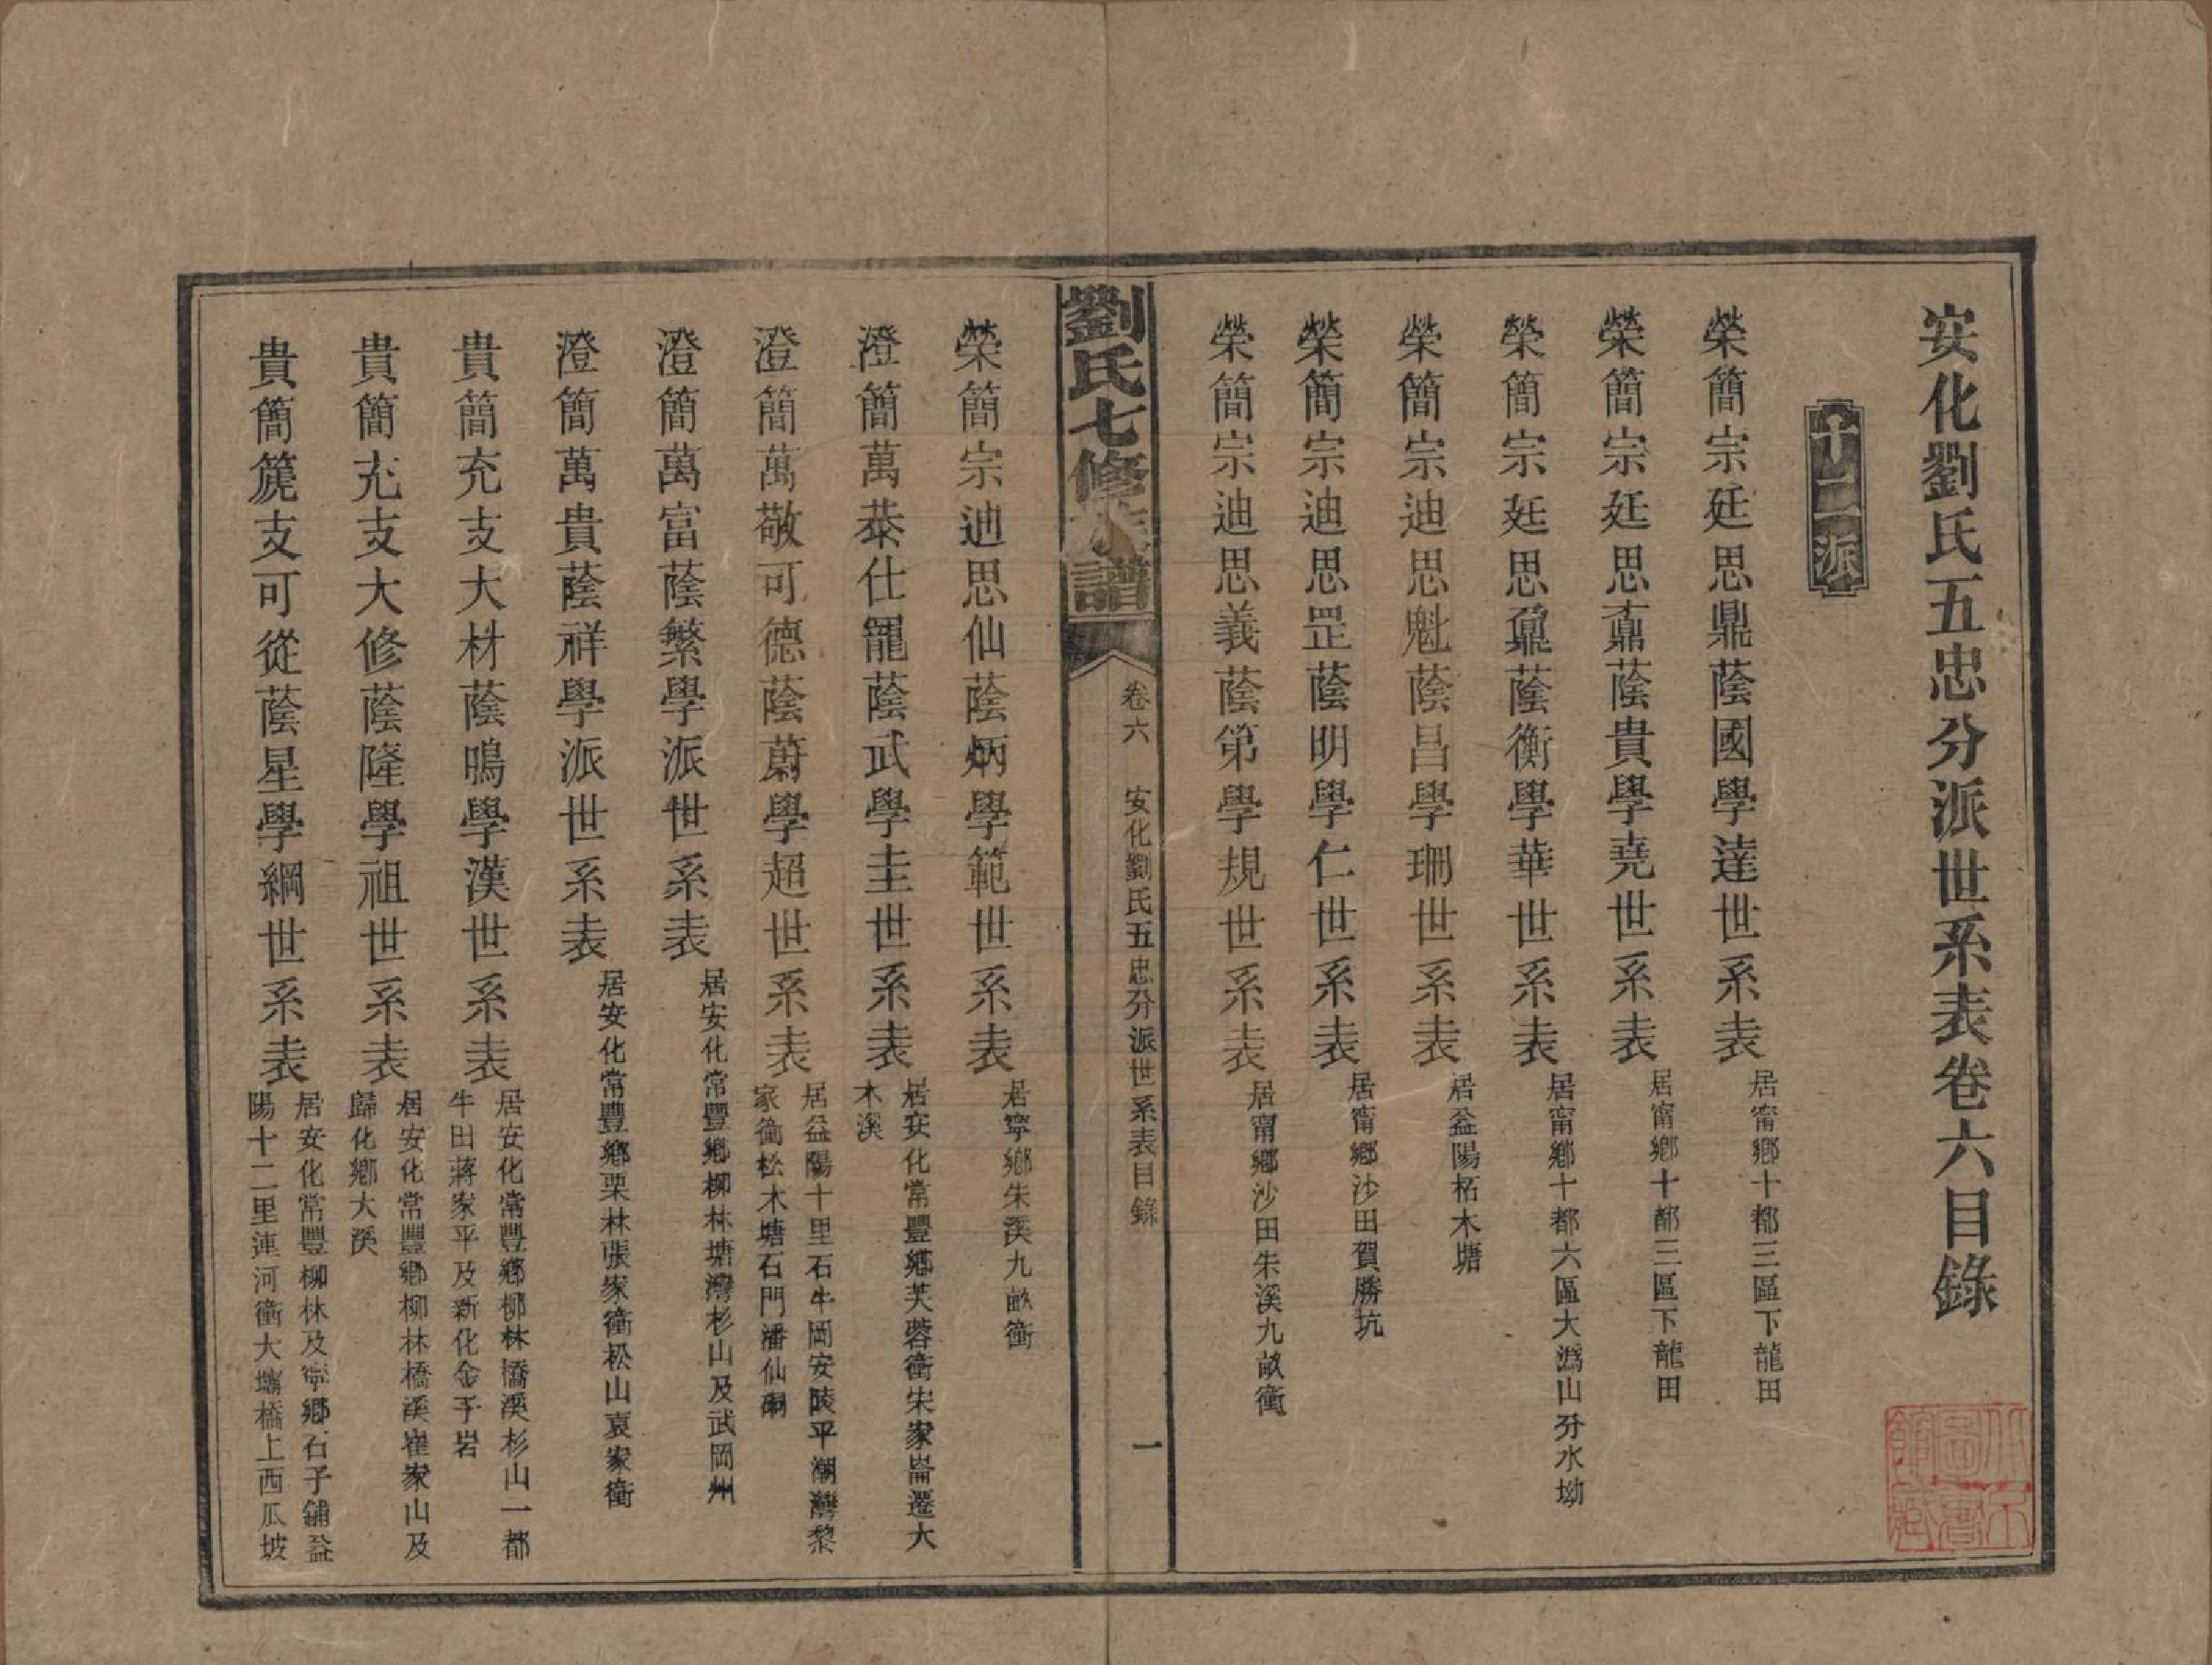 安化劉氏五忠分派世系表卷六目錄
十一派
榮簡宗廷思鼎蔭國學達世系表 居甯鄉十都三區下龍田
榮簡宗廷思鼒蔭貴學堯世系表 居甯鄉十都三區下龍田
榮簡宗廷思鼐蔭衡學華世系表 居甯鄉十都六區大溈山分水坳
榮簡宗迪思魁蔭昌學珊世系表 居益陽柘木塘
榮簡宗迪思罡蔭明學仁世系表 居甯鄉沙田賀勝坑
榮簡宗迪思義蔭第學規世系表 居甯鄉沙田朱溪九畝衝
劉氏七修族譜 卷六 安化劉氏五忠分派世系表目錄 一
榮簡宗迪思仙蔭炳學範世系表 居寧鄉朱溪九畝衝
澄簡萬恭仕寵蔭武學圭世系表 居安化常豐鄉芙蓉衝朱家崙遷大
木溪
澄簡萬敬可德蔭蔚學超世系表 居益陽十里石牛岡安陵平潮灣黎
家衝松木塘石門潘仙
澄簡萬富蔭繁學派世系表 居安化常豐鄉柳林塘灣杉山及武岡州
澄簡萬貴蔭祥學派世系表 居安化常豐鄉栗林張家衝松山袁家衝
貴簡充支大材蔭鳴學漢世系表 居安化常豐鄉柳林橋溪杉山一都
牛田蔣家平及新化金子岩
貴簡充支大修蔭隆學祖世系表 居安化常豐鄉柳林橋溪崔家山及
歸化鄉大溪
貴簡篪支可從蔭星學綱世系表 居安化常豐柳林及寧鄉石子鋪益
陽十二里連河衝大壩橋上西瓜坡